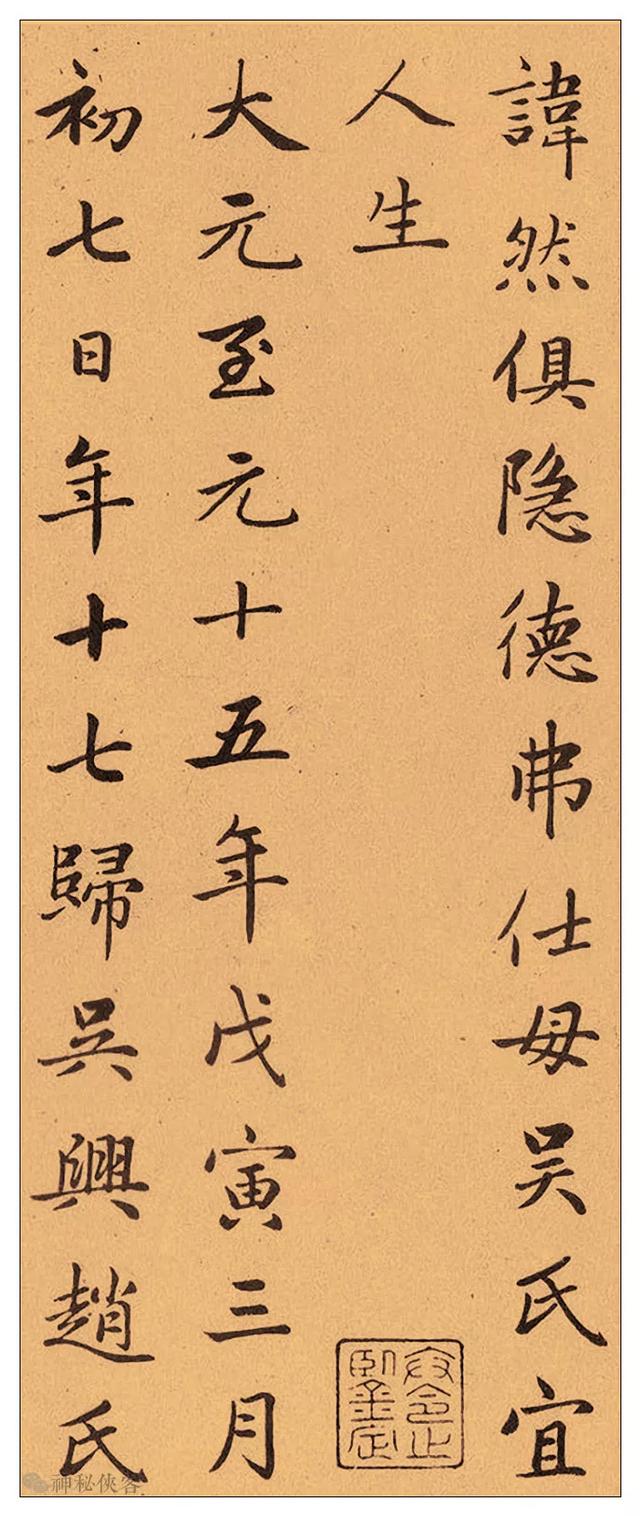 諱然俱隐德弗仕母吴氏宜
人生
大元至元十五年戊寅三月
初七日年十七歸吴興趙氏
神秘俠客